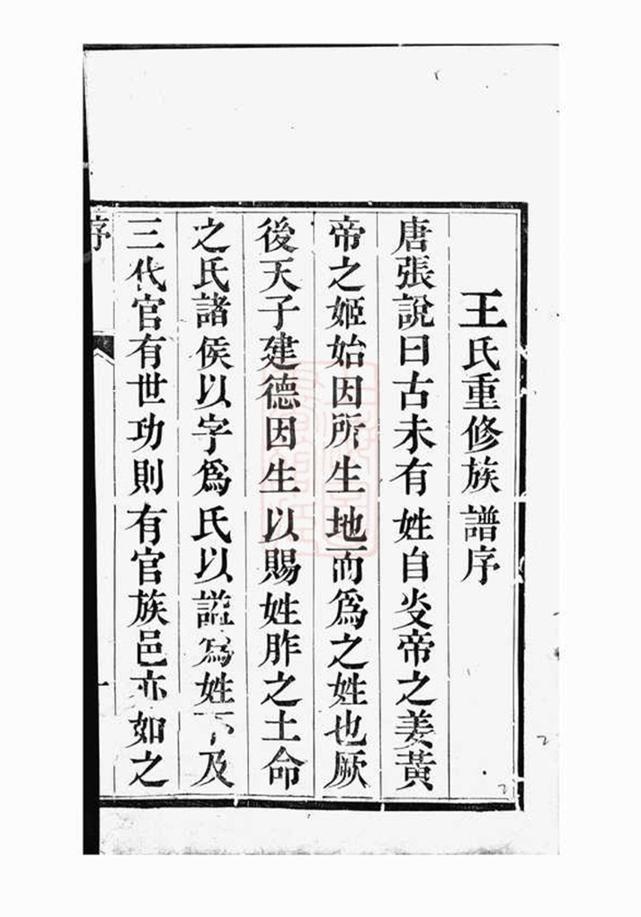 王氏重修族譜序
唐張說曰古未有姓自炎帝之姜黃
帝之姬始因所生地而爲之姓也厥
後天子建德因生以賜姓胙之土命
之氏諸侯以字爲氏以諡爲姓下及
三代官有世功則有官族邑亦如之
序
一